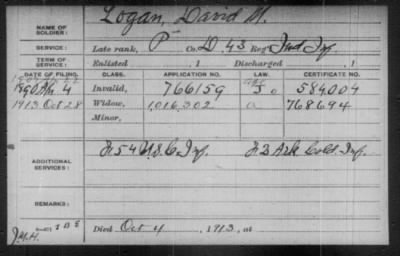 Logan, David M.
NAME OF SOLDIER:
SERVICE: Late rank, P Co. D, 43 Reg't Ind Inf.
TERM OF SERVICE: Enlisted , 1 Discharged , 1
DATE OF FILING. CLASS. APPLICATION NO. LAW. CERTIFICATE NO.
1890 4 Invalid, 766159 584004
1913 Oct 28 Widow, 1,016,302 a 768694
Minor,
ADDITIONAL SERVICES: F 54 U.S.C. Inf. F 2 Ark Cold. Inf.
REMARKS:
Died Oct 4, 1913, at
J.M.H.